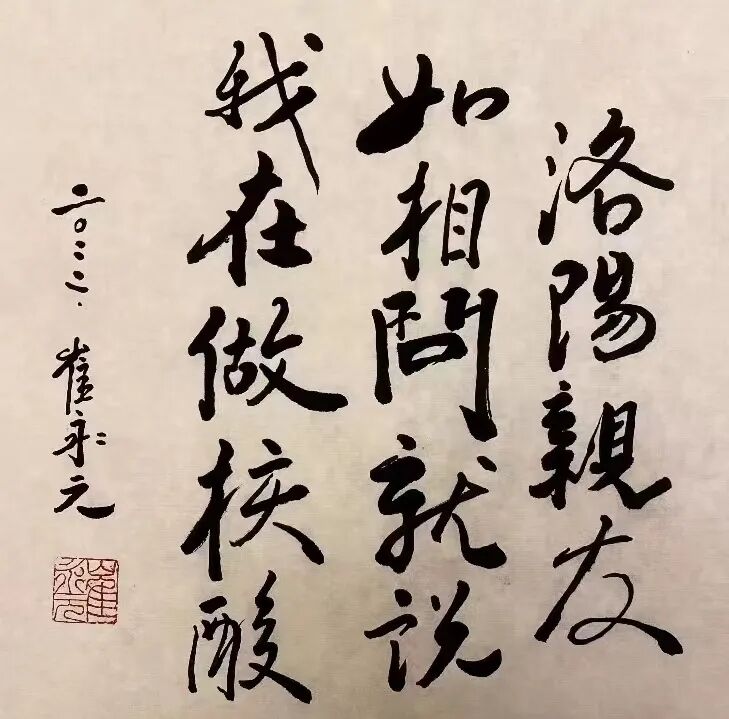 洛陽親友
如相問就说
我在做核酸
二〇二二.崔永元
崔永元